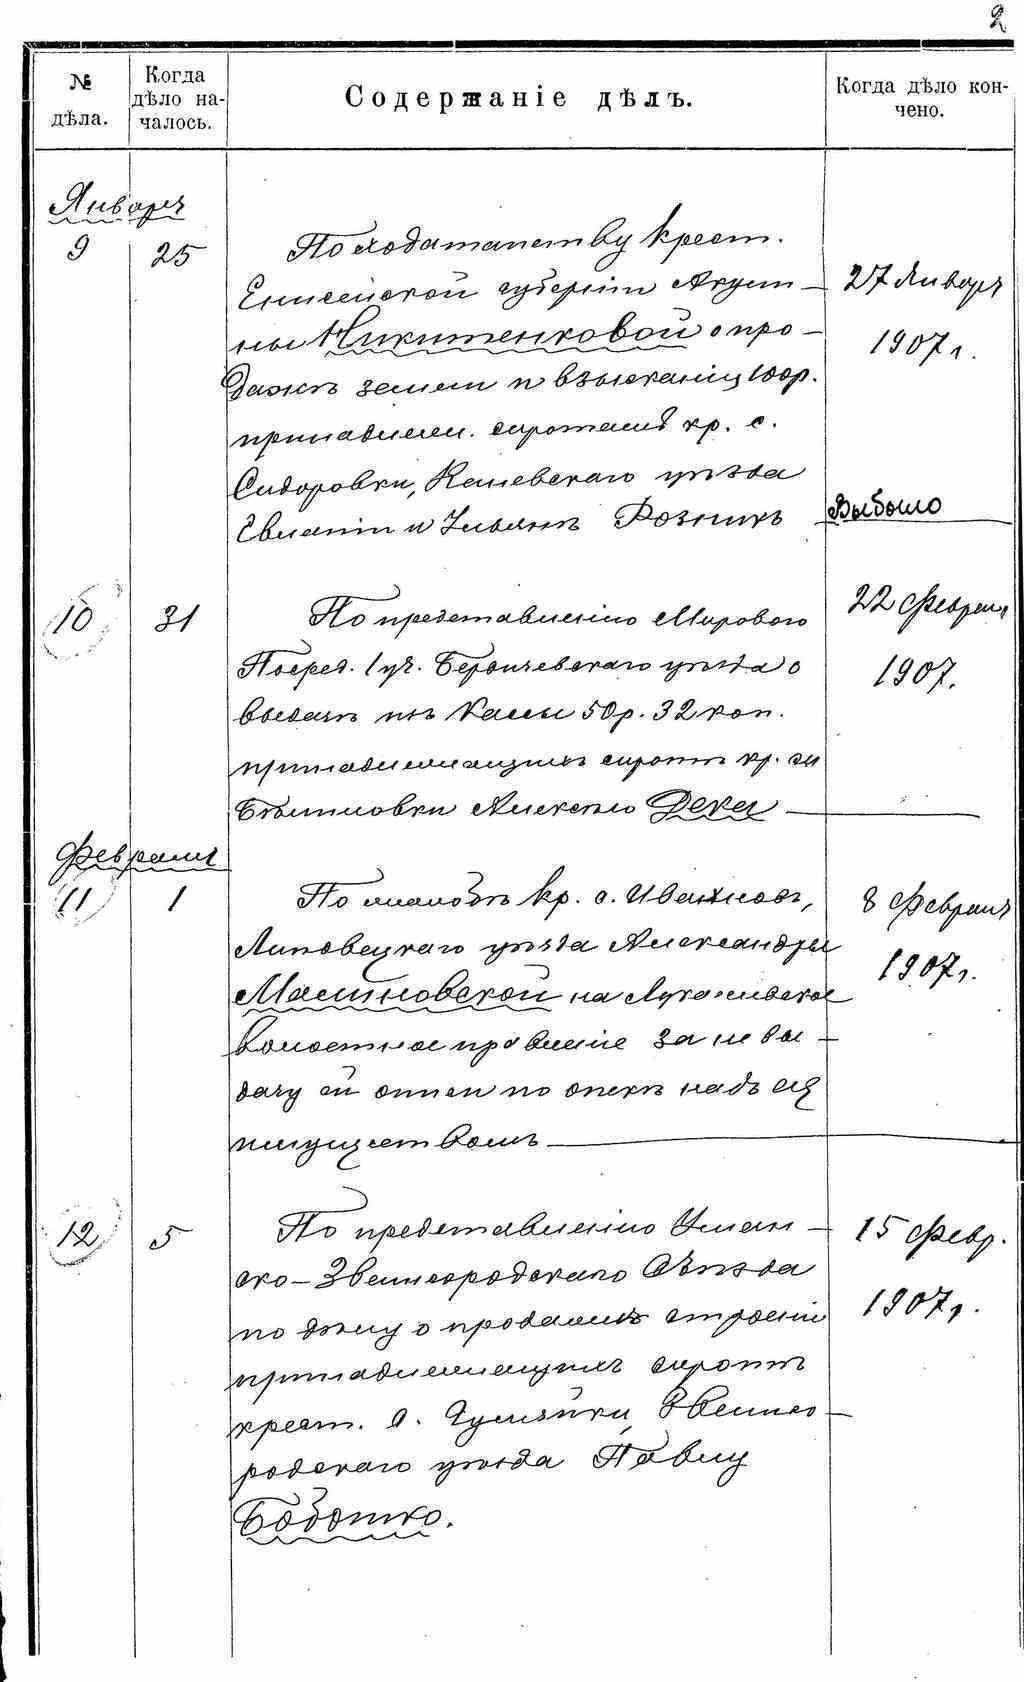 2
№ дѣла.
Когда дѣло на-
чалось.
Содержаніе дѣлъ.
Когда дѣло кон-
чено.
Январь
9 25
По ходатайству крест.
Енисейской губерніи Акули-
ны Никитенковой о про-
дажѣ земли и взысканіи 100р.
принадлеж. сиротамъ кр. с.
Сидоровки, Каневскаго уѣзда
Евгеніи и Ульянѣ Розникъ
27 Январь
1907 г.
Выбыло
10 31
По представленію Мирового
Посред. 1 уч. Бердичевскаго уѣзда о
выдачѣ изъ кассы 50р. 32 коп.
принадлежащихъ сиротѣ кр. с.
Бѣлиловки Алексѣю Декец
22 Феврал
1907.
Февраль
11 1
По жалобѣ кр. с. Иваньковъ,
Липовецкаго уѣзда Александры
Малиновской на Лукашевское
волостное правленіе за не вы-
дачу ей описи по опекѣ надъ ея
имуществомъ
8 Февраль
1907 г.
12 5
По представленію Уман-
ско-Звенигородскаго Съѣзда
по дѣлу о продажѣ строеній
принадлежащихъ сиротѣ
крест. с. Гусяйки, Звениго-
родскаго уѣзда Павлу
Бободтко.
15 Февр.
1907 г.